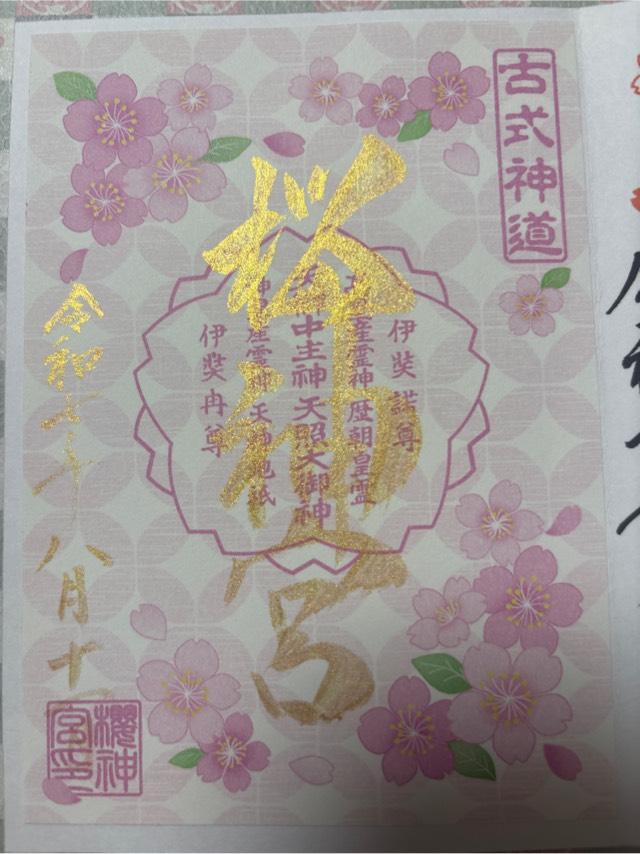 古式神道
桜神宮
伊奘諾尊
産霊神 歴朝皇霊
中主神 天照大御神
産霊神 天神地祇
伊奘冉尊
令和七年八月十
櫻神
宮印